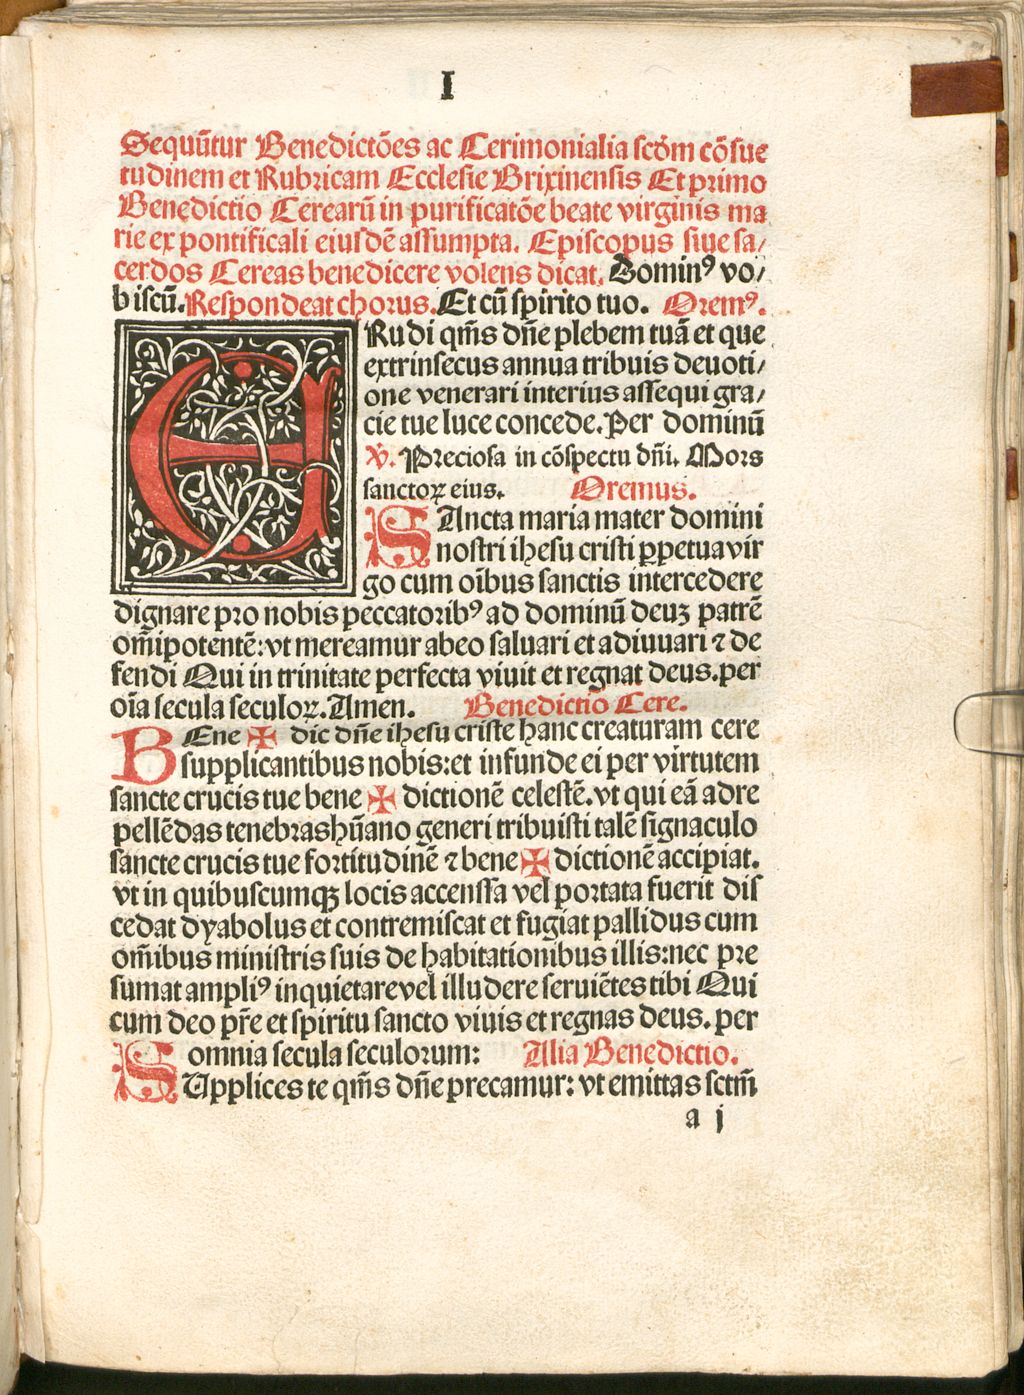 I
Sequūtur Benedictōes ac Cerimonialia scd̄m cōsue
tudinem et Rubricam Ecclesie Brixinensis Et primo
Benedictio Cerearū in purificatōe beate virginis ma
rie ex pontificali eiusdē assumpta. Episcopus siue sa/
cerdos Cereas benedicere volens dicat. Dominꝰ vo/
biscū. Respondeat chorus. Et cū spirito tuo. Oremꝰ.
ERudi qm̄s dn̄e plebem tuā et que
extrinsecus annua tribuis deuoti/
one venerari interius assequi gra/
cie tue luce concede. Per dominū
℣. Preciosa in cōspectu dn̄i. Mors
sanctoꝝ eius. Oremus.
SAncta maria mater domini
nostri ihesu cristi ꝑpetua vir
go cum oībus sanctis intercedere
dignare pro nobis peccatoribꝰ ad dominū deuʒ patrē
om̄ipotentē: vt mereamur ab eo saluari et adiuuari ⁊ de
fendi Qui in trinitate perfecta viuit et regnat deus. per
oīa secula seculoꝝ. Amen. Benedictio Cere.
BEne ✠ dic dn̄e ihesu criste hanc creaturam cere
supplicantibus nobis: et infunde ei per virtutem
sancte crucis tue bene ✠ dictionē celestē. vt qui eā ad re
pellēdas tenebras hūano generi tribuisti talē signaculo
sancte crucis tue fortitudinē ⁊ bene ✠ dictionē accipiat.
vt in quibuscumqꝫ locis accenssa vel portata fuerit dis
cedat dyabolus et contremiscat et fugiat pallidus cum
om̄ibus ministris suis de habitationibus illis: nec pre
sumat ampliꝰ inquietare vel illudere seruiētes tibi Qui
cum deo pr̄e et spiritu sancto viuis et regnas deus. per
omnia secula seculorum: Alia Benedictio.
SUpplices te qm̄s dn̄e precamur: vt emittas sctm̄
a j